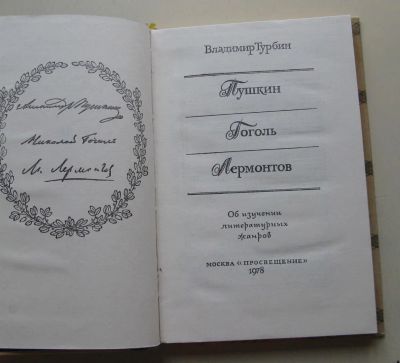 Александр Пушкин
Николай Гоголь
М. Лермонтов
Владимир Турбин
Пушкин
Гоголь
Лермонтов
Об изучении
литературных
жанров
МОСКВА «ПРОСВЕЩЕНИЕ»
1978